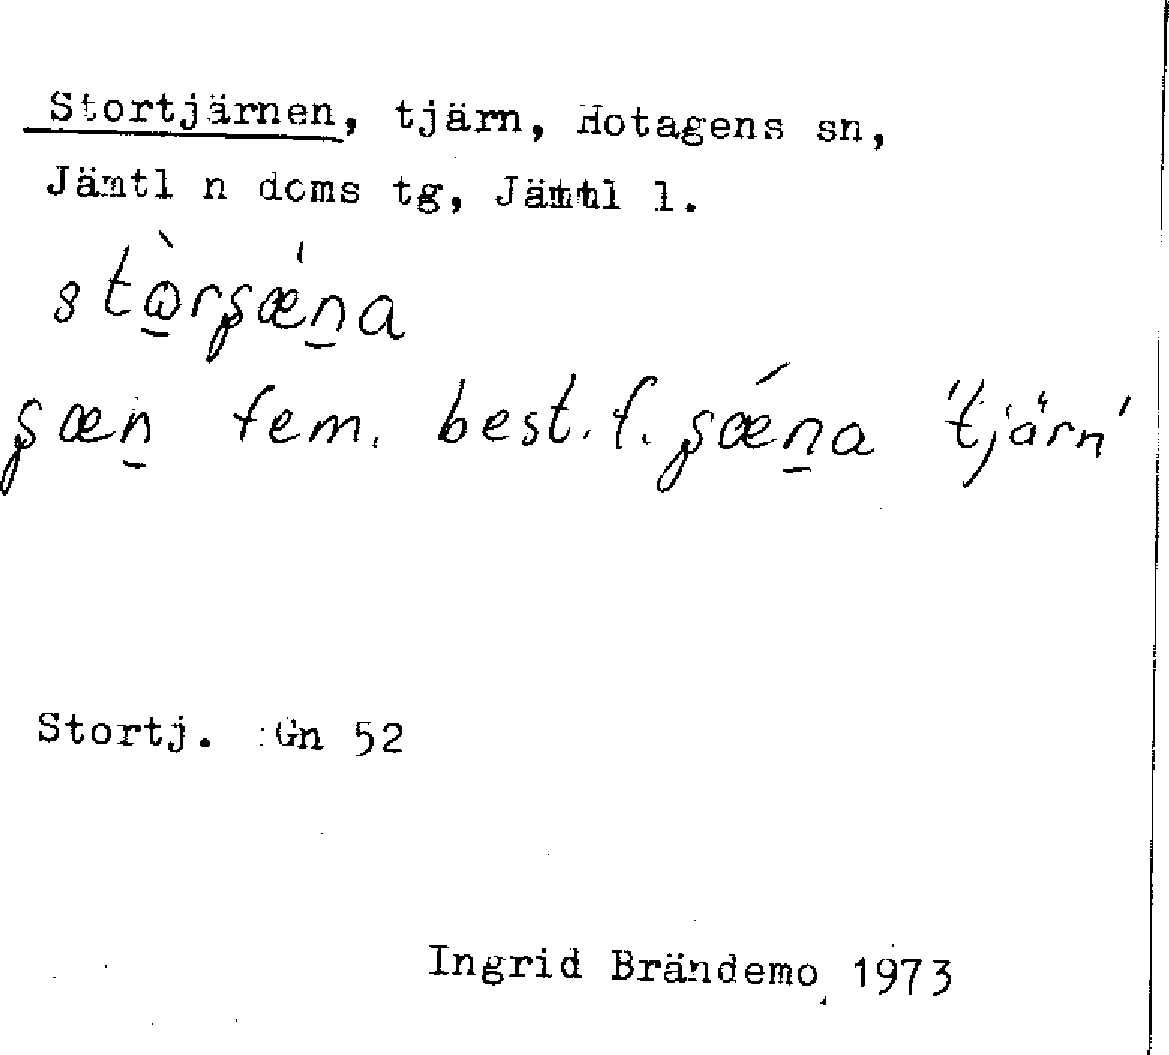 Stortjärnen, tjärn, Hotagens sn,
Jämtl n doms tg, Jämtl l.
fem. best. f. 'tjärn'
Stortj. :Gn 52
Ingrid Brändemo 1973